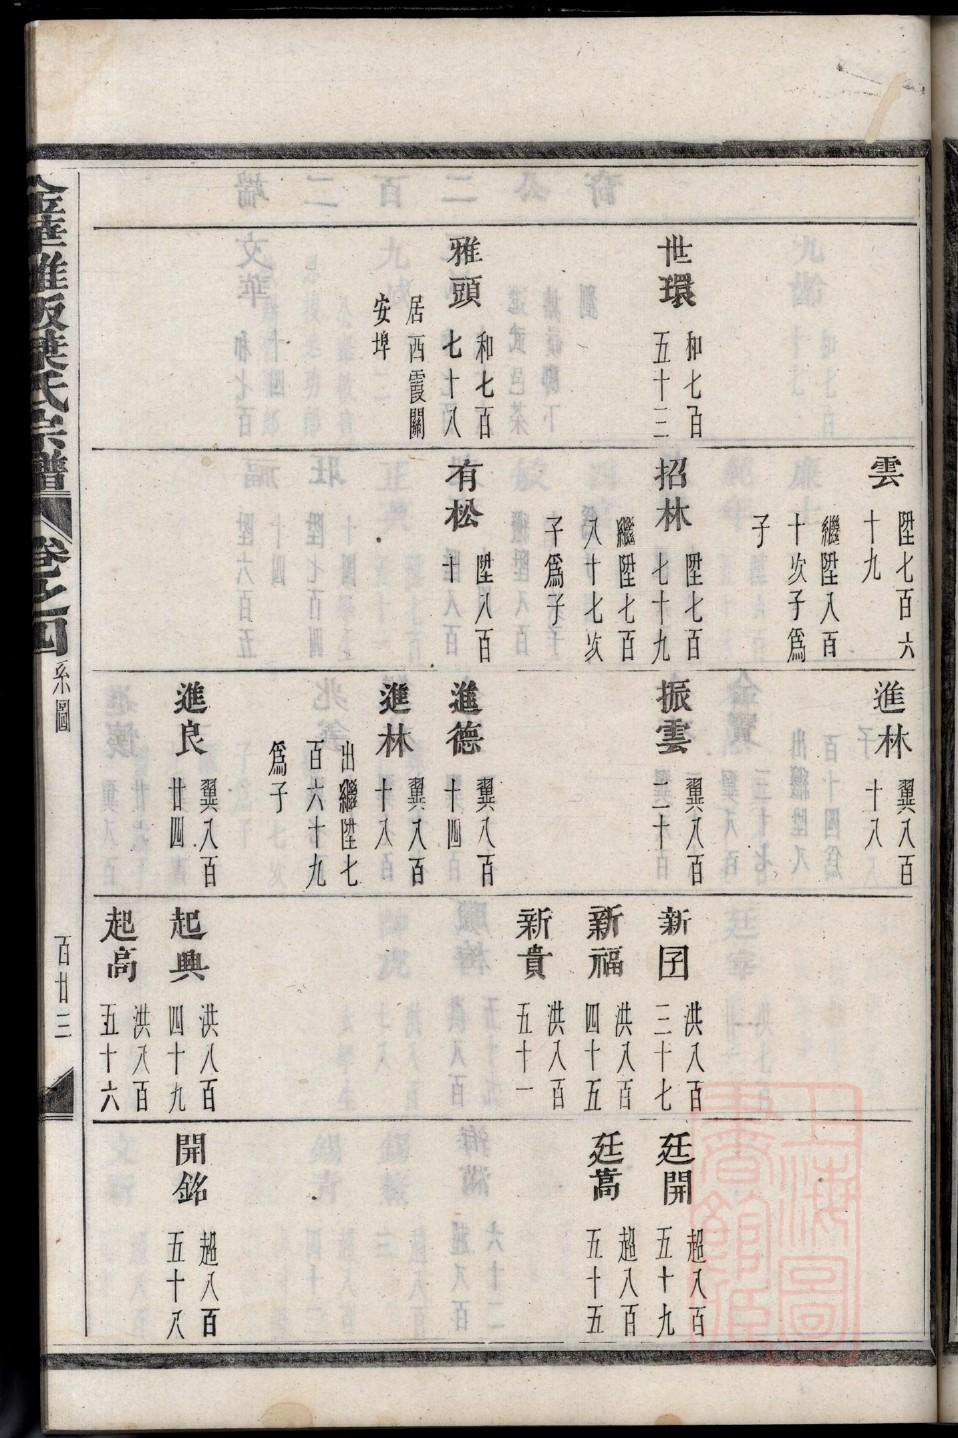 世環
和七百
五十三
雅頭
和七百
七十八
居西霞關
安埠
雲
陞七百六
十九
繼陞八百
十次子爲
子
招林
陞七百
七十九
繼陞七百
八十七次
子爲子
有松
陞八百
廿
進林
翼八百
十八
振雲
翼八百
二十
進德
翼八百
十四
進林
翼八百
十八
出繼陞七
百六十九
爲子
進良
翼八百
廿四
新囝
洪八百
三十七
新福
洪八百
四十五
新貴
洪八百
五十一
起興
洪八百
四十九
起高
洪八百
五十六
廷開
超八百
五十九
廷蒿
超八百
五十五
開銘
超八百
五十八
葉氏宗譜
卷之四
系圖
百廿三
上海圖
書館藏